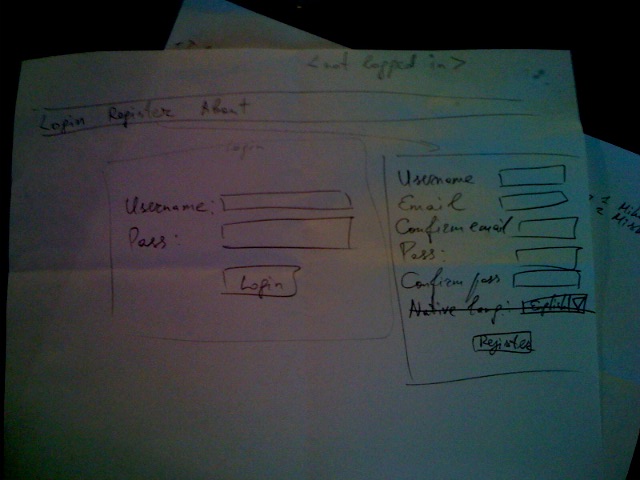 <not logged in>
Login Register About
Login
Username:
Pass:
Login
Username
Email
Confirm email
Pass:
Confirm pass
Native lang:
Register